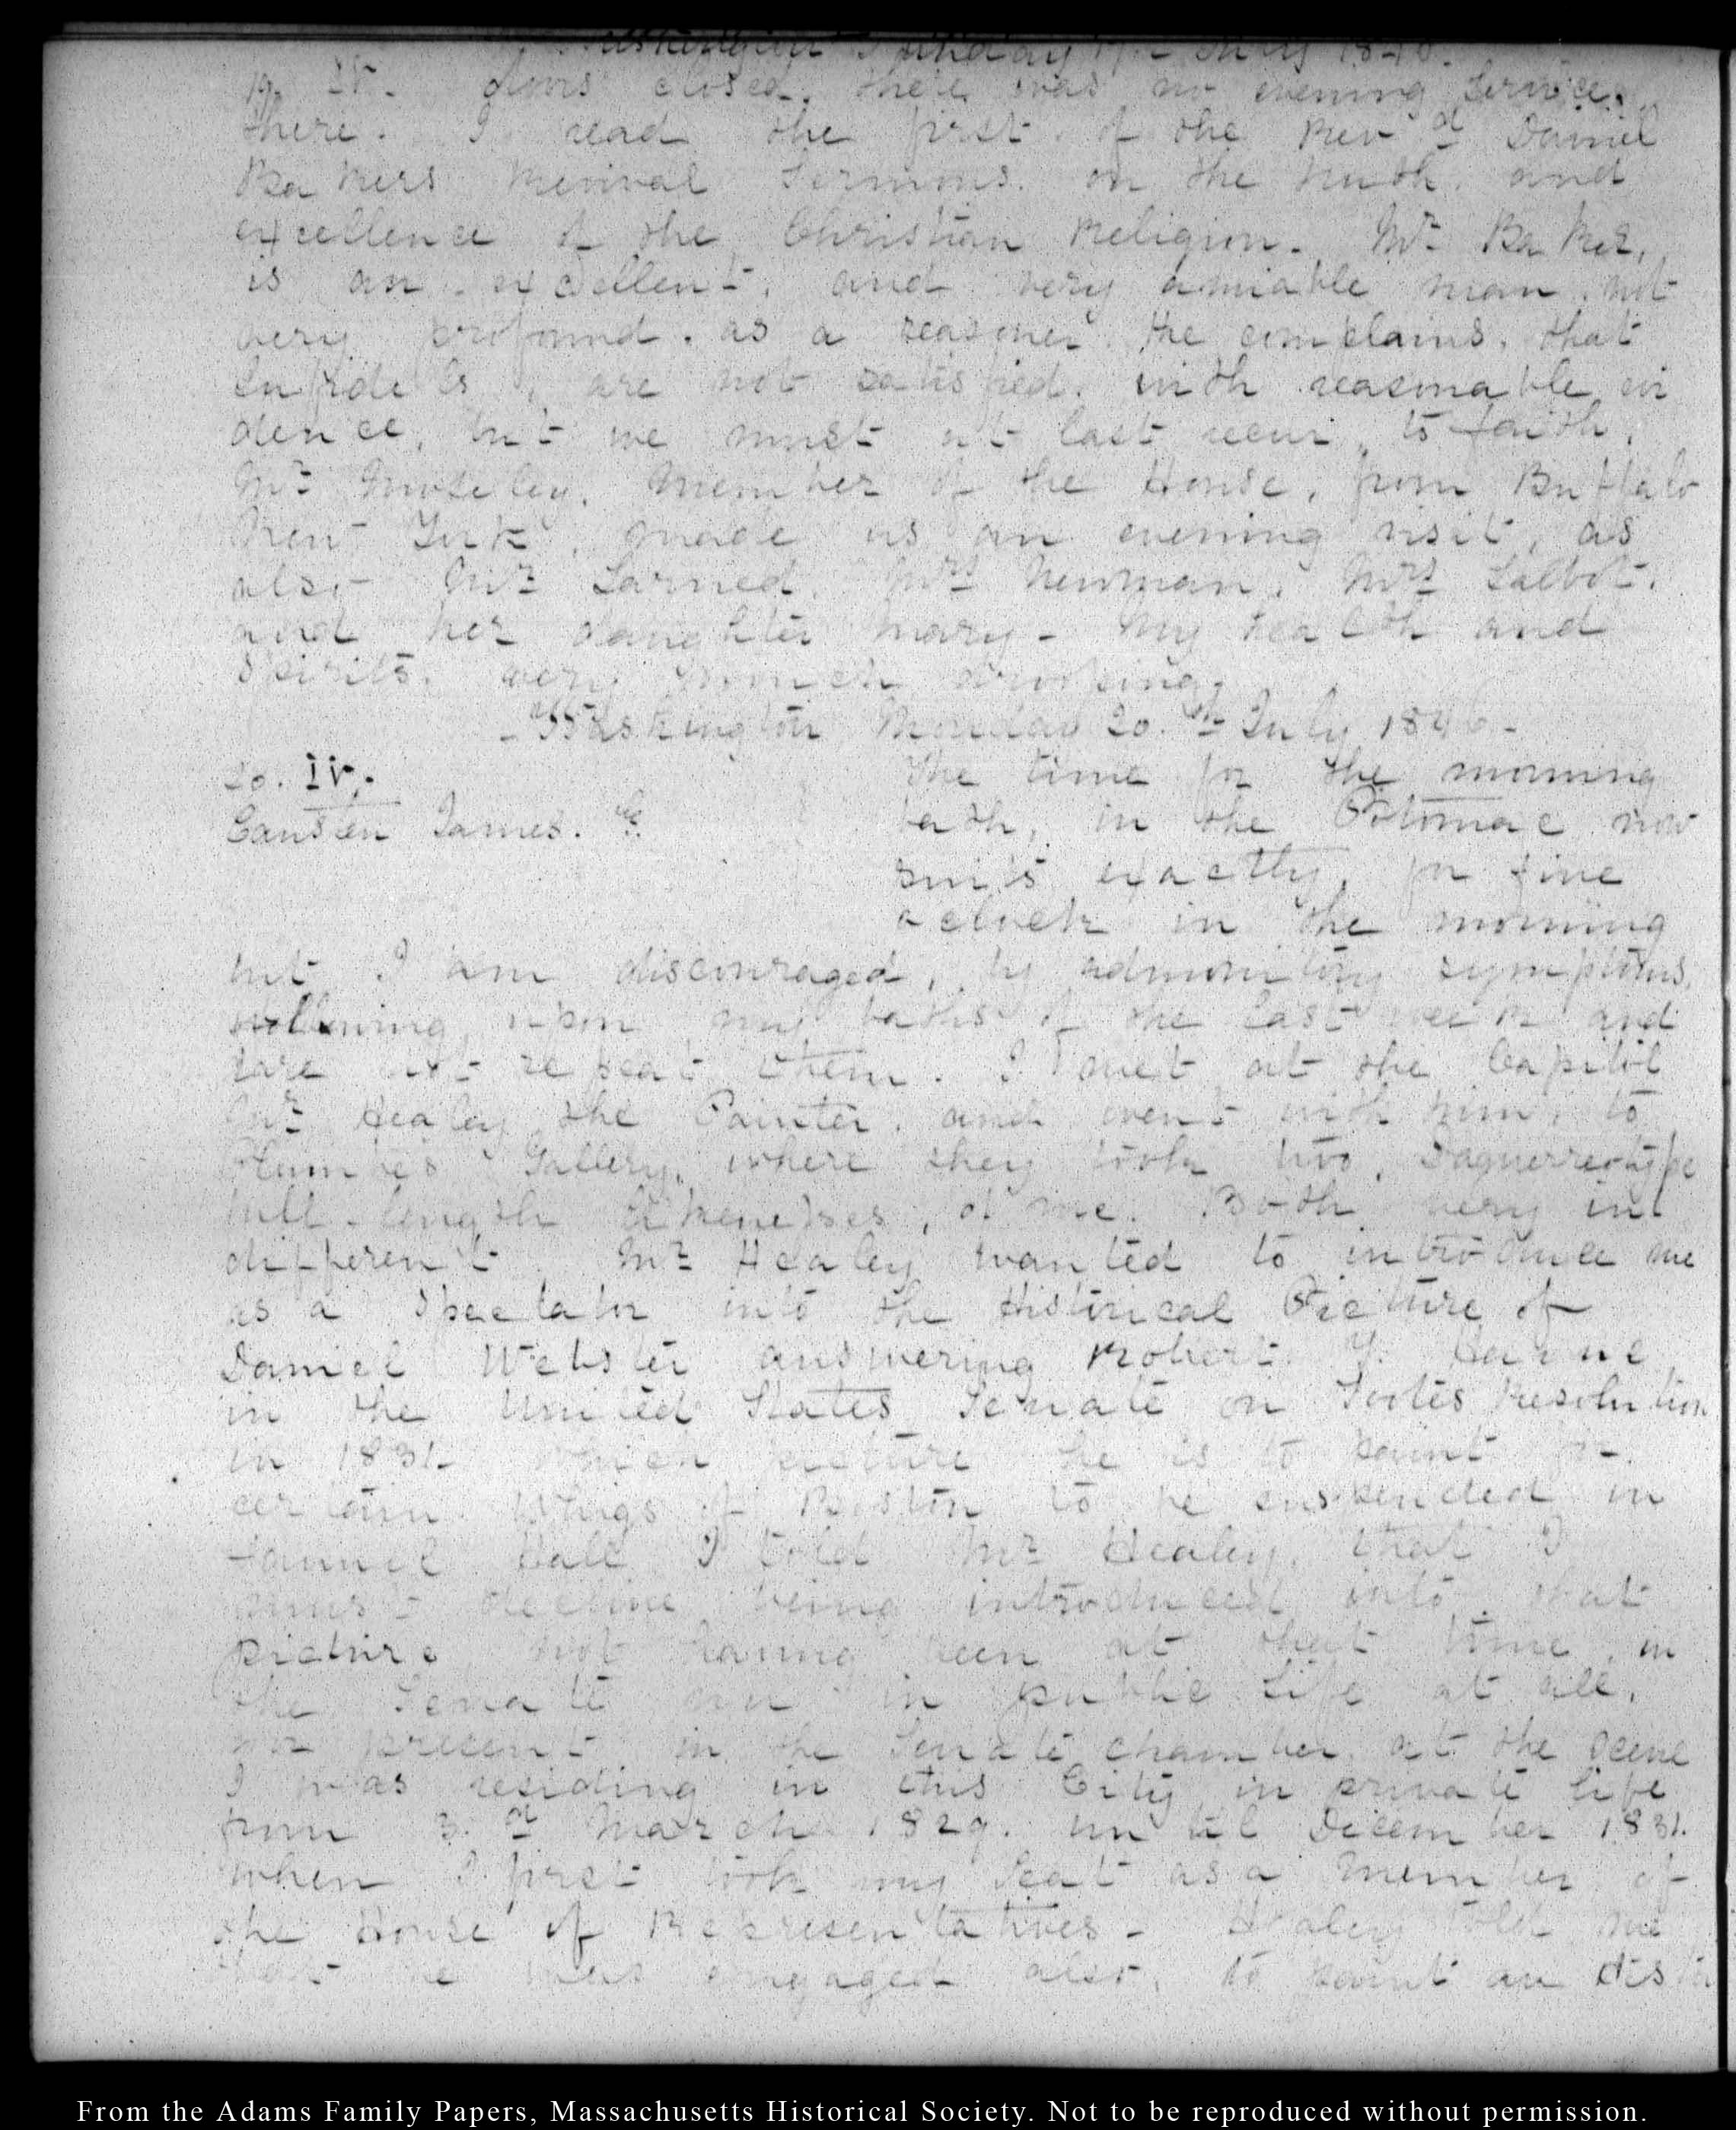 Washington Sunday 19. July 1846.
19. IV. doors closed, there was no evening Service,
there. I read the first of the Revd. Daniel
Bakers Revival Sermons. on the truth and
excellence of the Christian Religion. Mr. Baker,
is an excellent, and very amiable man, not
very profound, as a reasoner. He complains, that
Infidels, are not satisfied, with reasonable evi
dence, but we must at last recur, to faith,
Mr. Moseley, Member of the House, from Buffalo
New York, made us an evening visit, as
also Mr. Larned, Mrs Newman, Mrs Talbot,
and her daughter Mary - My health and
Spirits, very much drooping,
- Washington Monday 20.th July 1846 -
20. IV.-
Causten James. H.
The time for the morning
bath, in the Potomac now
suits exactly, for five
o clock in the morning
but I am discouraged, by admonitory symptoms,
following upon my baths of the last week and
dare not repeat them. I met at the Capitol
Mr. Healey the Painter, and went with him, to
Plumbe's Gallery, where they took two, Daguerreotype
full length likenesses, of me. Both very in
different. Mr. Healey wanted to introduce me
as a Spectator into the Historical Picture of
Daniel Webster answering Robert Y. Hayne
in the United States Senate on Footes Resolution
in 1831. which picture he is to paint for
certain Whigs of Boston to be suspended in
Fanueil Hall I told Mr. Healey, that I
must decline being introduced into that
picture not having been at that time, in
the Senate nor in public Life at all,
nor present in the Senate chamber at the scene
I was residing in this City in private life
from 3.d March 1829. until December 1831.
when I first took my Seat as a Member of
the House of Representatives - Healey told me
that he was engaged also, to paint an Histo
From the Adams Family Papers, Massachusetts Historical Society. Not to be reproduced without permission.